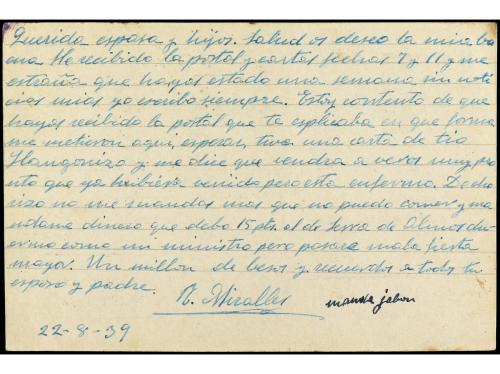 Querida esposa y hijos. Salud os deseo la mia bu
ena He recibido la postal y cartas fechas 7 y 11 y me
estraña que hayas estado una semana sin noti
cias mias yo escribo siempre. Estoy contento de que
hayas recibido la postal que te esplicaba en que forma
me metieron aqui, esposa, tuve una carta de tio
y me dice que vendra a veros muy pro
nto que ya hubiera venido pero esta enfermo. De cho
rizo no me mandes mas que no puedo comer y ma
ndame dinero que debo 15 pts. el de Serra de Almos du
ermo como un ministro pero pasare mala fiesta
mayor. Un millon de besos y recuerdos a todos tu
esposo y padre.
R. Miralles
manda jabon
22-8-39